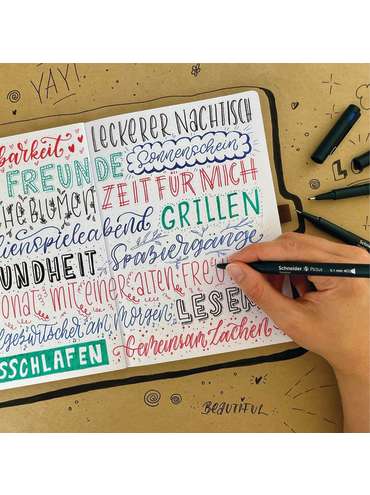 YAY!
LECKERER NACHTISCH
barkeit
Sonnenschein
FREUNDE
ZEIT FÜR MICH
BLUMEN
GRILLEN
lienspieleabend
Spaziergänge
UNDHEIT
onat mit einer alten Freu
LESEN
gezwitscher am Morgen
SSCHLAFEN
Gemeinsam Lachen
Schneider Pictus 0.1 mm
BEAUTIFUL